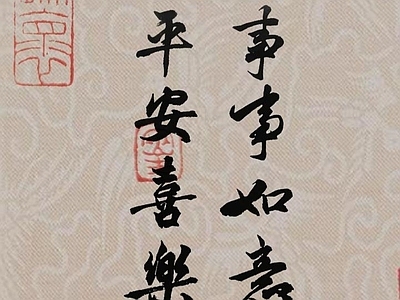 事事如意
平安喜樂